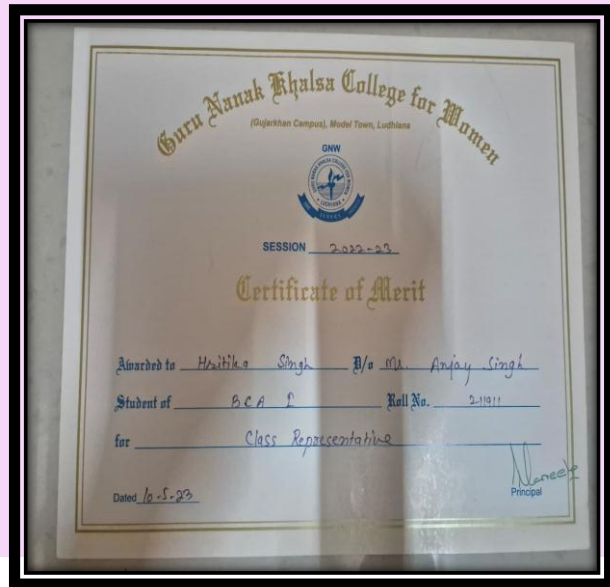 Guru Nanak Khalsa College for Women
(Gujarkhan Campus), Model Town, Ludhiana
GNW
SESSION 2022-23
Certificate of Merit
Awarded to Hritika Singh D/o Mr. Anjay Singh
Student of BCA I Roll No. 211911
for Class Representative
Dated 10-5-23
Principal